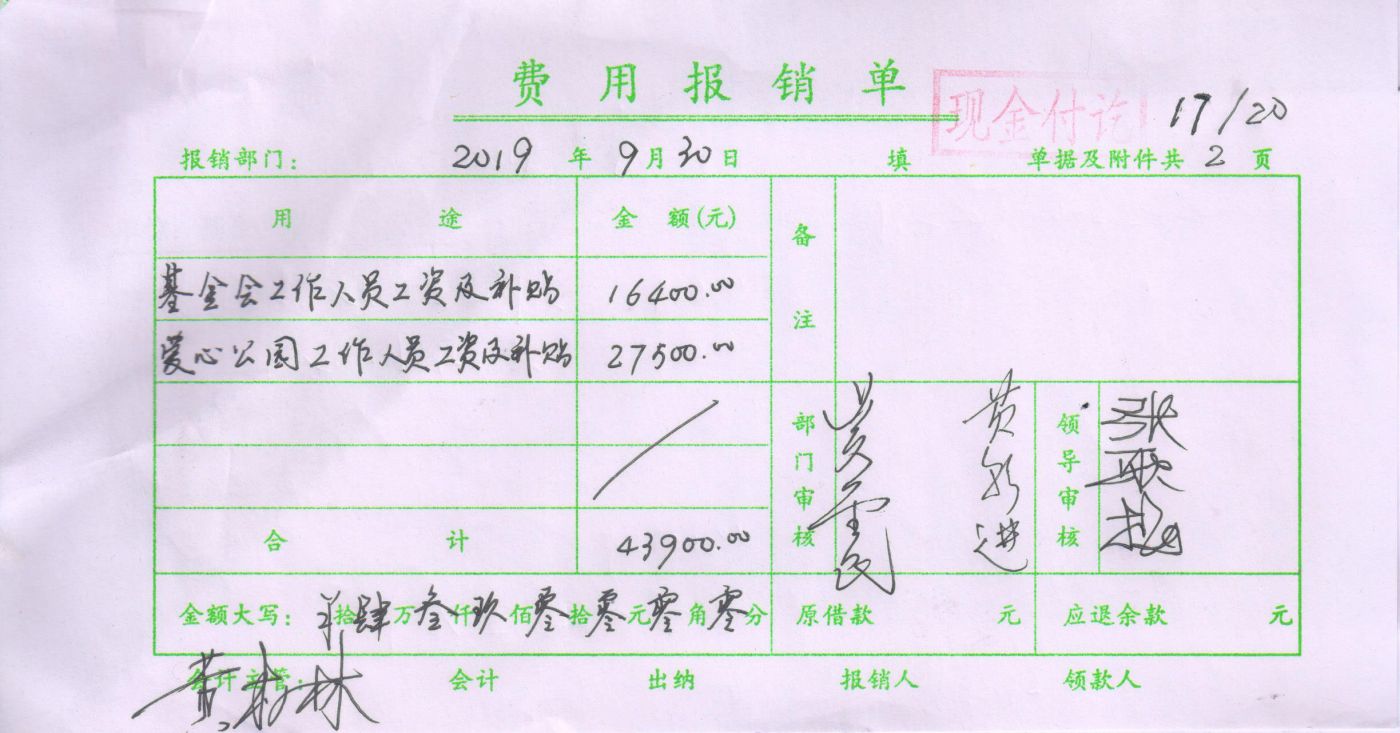 费用报销单
现金付讫
17/20
报销部门: 2019年9月30日 填 单据及附件共2页
用途 金额(元) 备注
基金会工作人员工资及补贴 16400.00
爱心公园工作人员工资及补贴 27500.00
部门审核 领导审核
合计 43900.00
金额大写: 拾肆万叁仟玖佰零拾零元零角零分 原借款 元 应退余款 元
会计主管: 会计 出纳 报销人 领款人